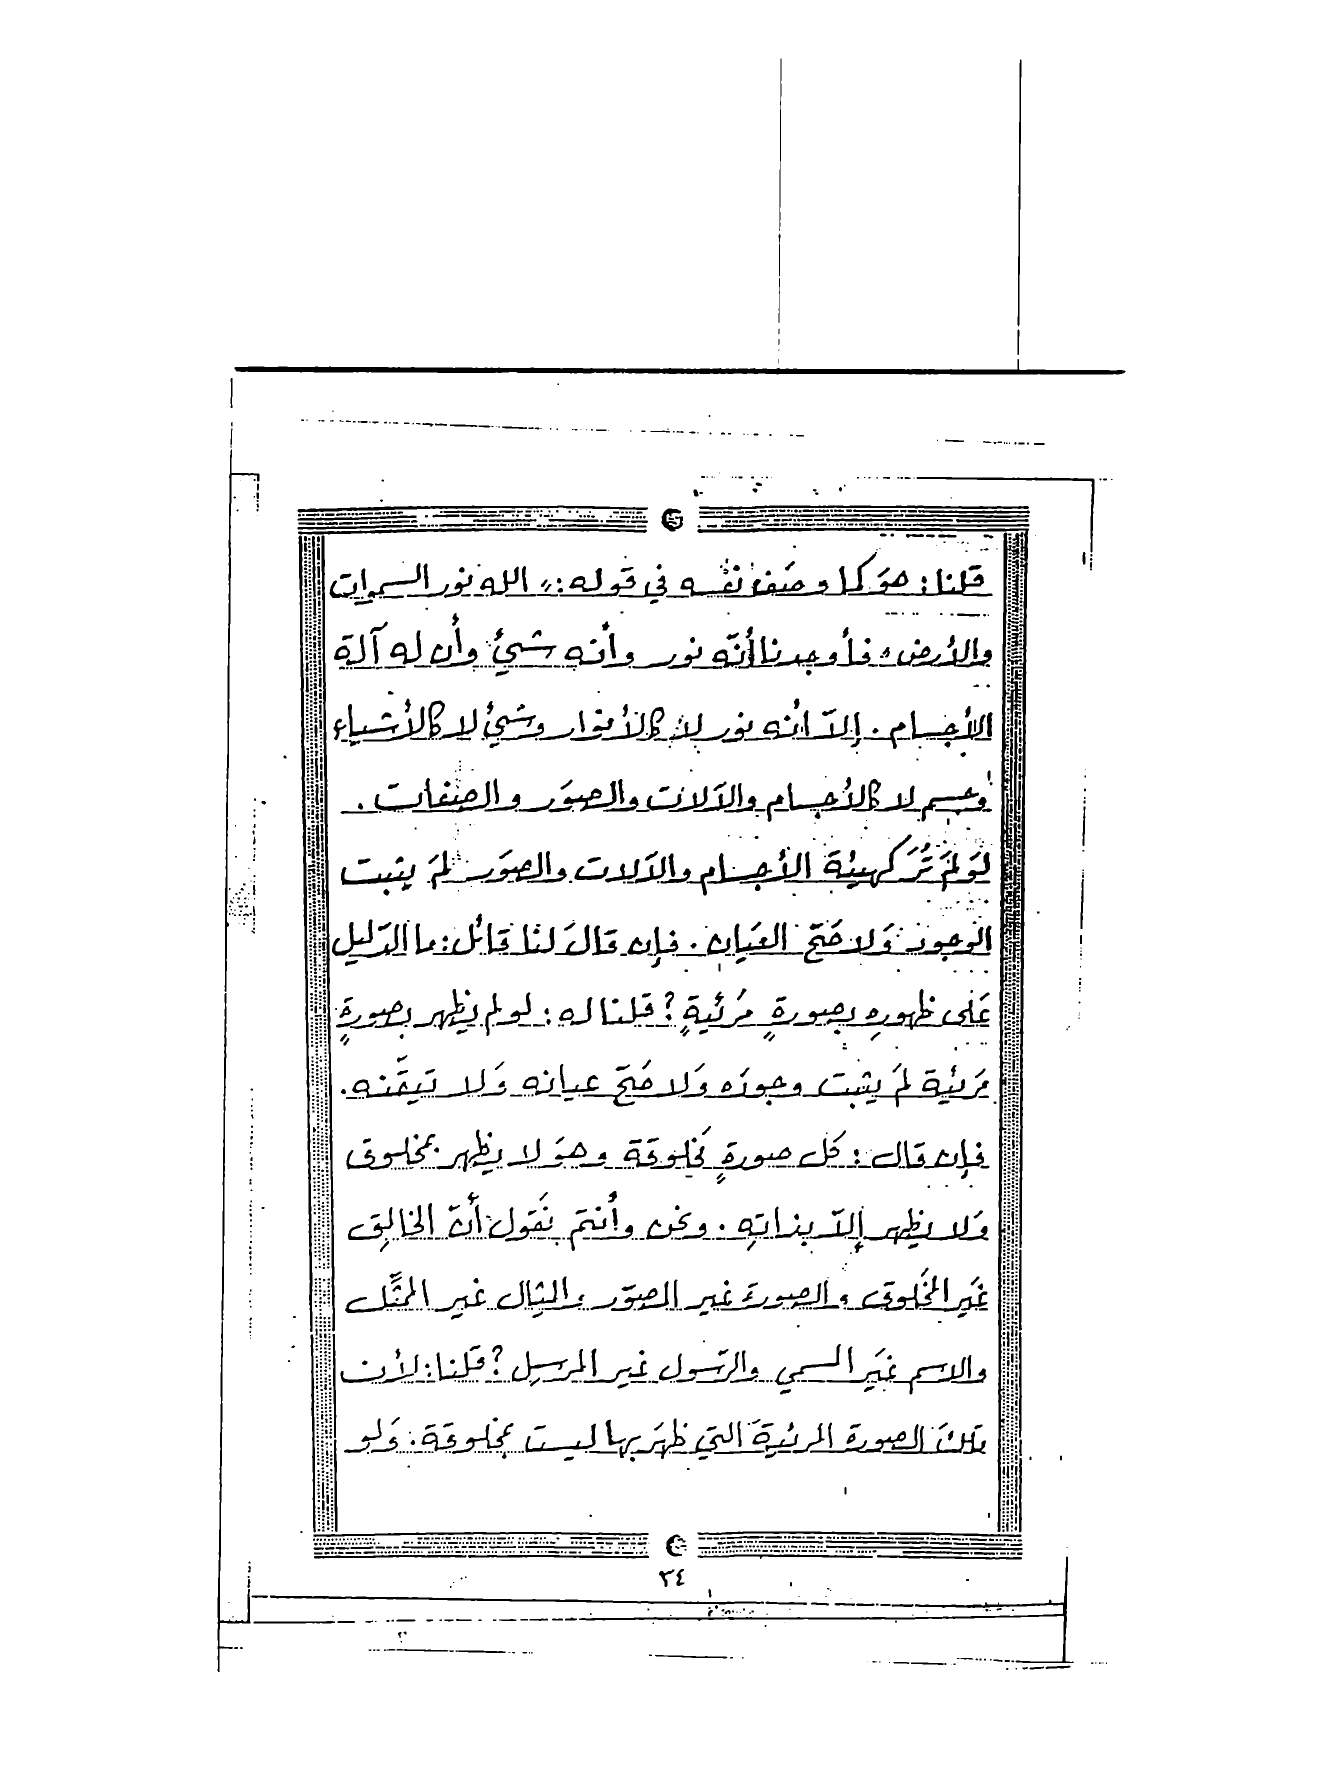 قلنا: هوَ كما وصَفَ نفْسه في قوله:" الله نور السموات
والأرض" فأوجدنا أنّه نور وأنه شيئ وأن له آلة
الأجسام. إلاّ أنه نور لا كالأنوار وشيئ لا كالأشياء
وجسم لا كالأجسام والآلات والصوَر والصفات.
لوَ لمَ تُرَ كهيئة الأجسام والآلات والصوَر لمَ يثبت
الوجود وَلا صَحّ العيَان. فإن قالَ لنا قائل: ما الدّليل
عَلى ظهورهِ بصورةٍ مَرئيةٍ؟ قلنا له: لو لم يظهر بصورةٍ
مَرئية لمَ يثبت وجودَه وَلا صَحّ عيانه وَلا تيقّنه.
فإن قال: كل صورةٍ مَخلوقة وهوَ لا يظهر بمخلوق
وَلا يظهر إلاّ بذاتهِ. ونحن وأنتم نقَول أنّ الخالِق
غيَر المخَلوق والصورة غير المصوّر والمثال غير الممثَّل
والاسم غيَر المسمي والرّسول غير المرسِل؟ قلنا: لأن
تلكَ الصورة المرئيةَ التي ظهَر بها ليست بمخلوقة. وَلو
٣٤